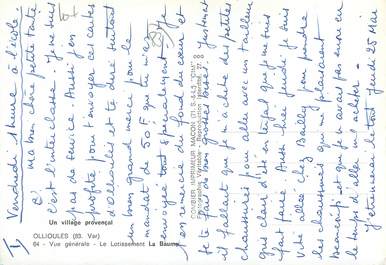 Vendredi 1 heure à l'école
ma bien chère petite tante
C'est l'interclasse. Je ne suis
pas de service. Aussi j'en
profite pour t'envoyer ces cartes
d'Ollioules et te dire surtout
un bien grand merci pour le
mandat de 50 F que tu m'a
envoyée tout spécialement. Je
t'en remercie du fond du cœur et
je te fais un gosse bisous. Justement
il fallait que je m'achète des petites
chaussures pour aller avec un tailleur
gris clair d'été en léger que je me suis
fait faire. Aussi hier jeudi je suis
vite allée chez Bailly pour prendre
les chaussures qui me plaisaient
beaucoup et que je n'avais pas encore eu
le temps d'aller m'acheter.
J'étrennerai le tout Jeudi 25 Mai
Un village provençal
OLLIOULES (83. Var)
64 - Vue générale - Le Lotissement La Baume
COMBIER IMPRIMEUR MACON (71. S.-&-L.) "CIM"